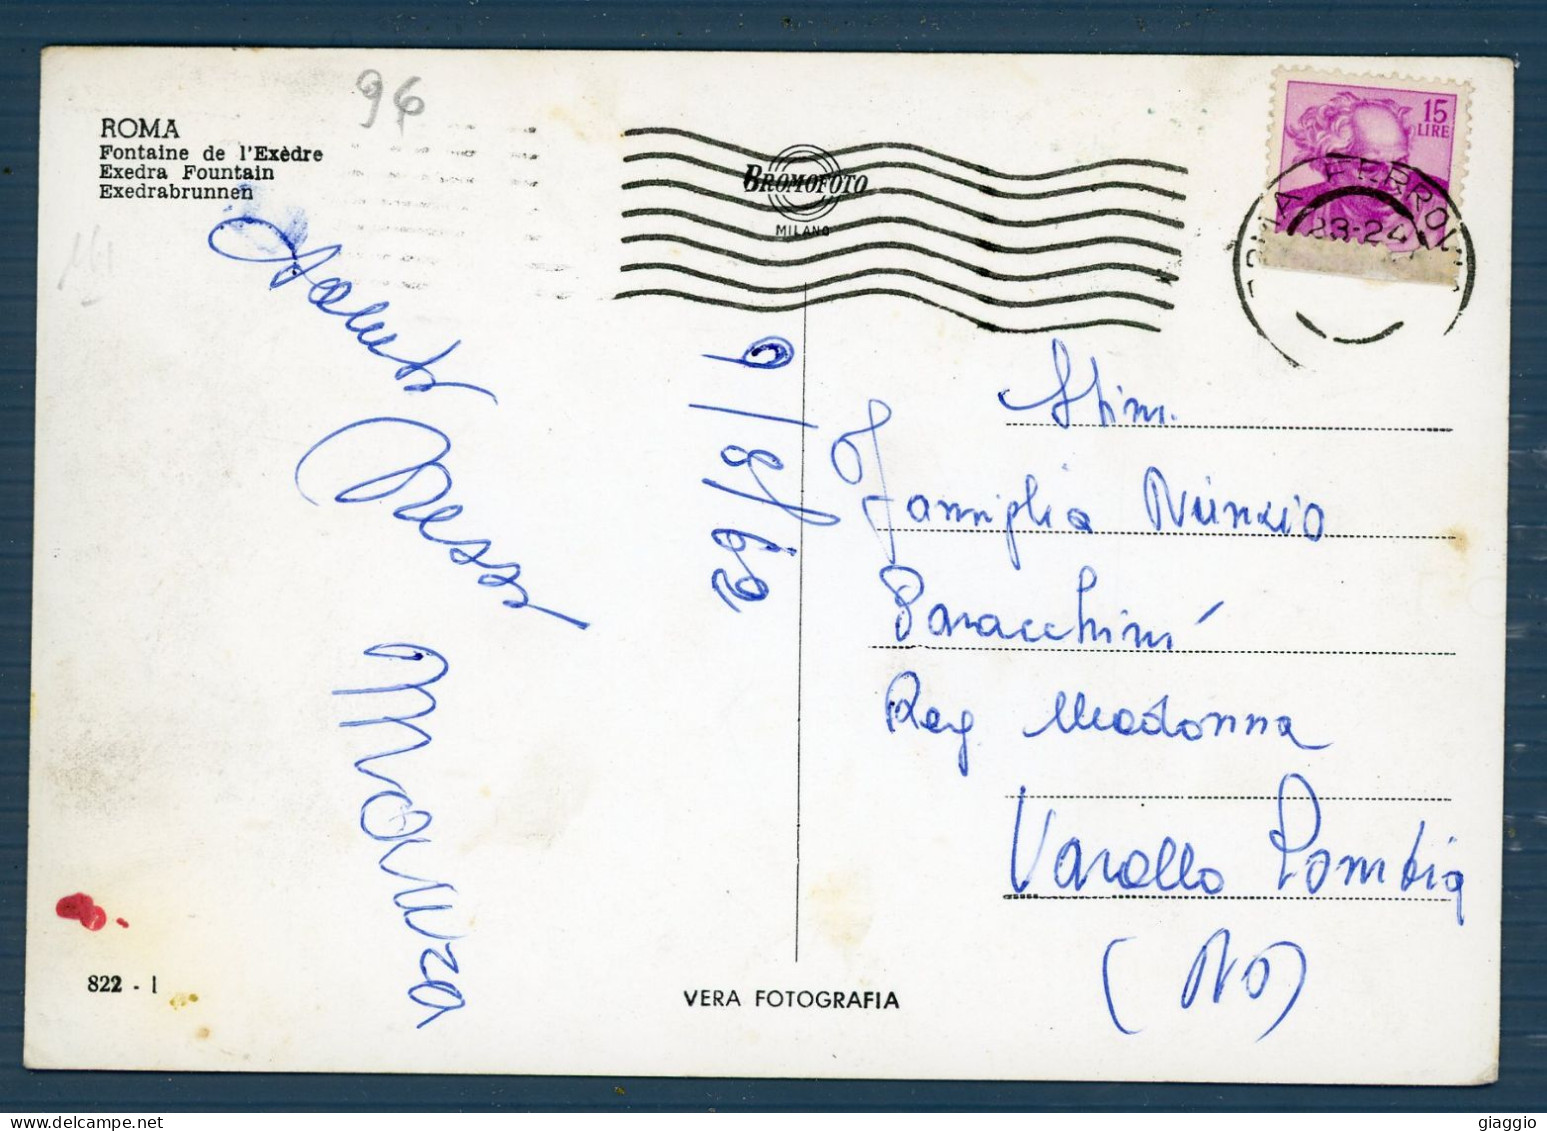 96
ROMA
Fontaine de l'Exèdre
Exedra Fountain
Exedrabrunnen
BROMOFOTO
MILANO
15
LIRE
ROMA FERROVIA
23-24
9/8/62
Maura
Stim.
Famiglia Nunzio
Paracchini
Reg Madonna
Varallo Pombia
(NO)
822 - I
VERA FOTOGRAFIA
giaggio